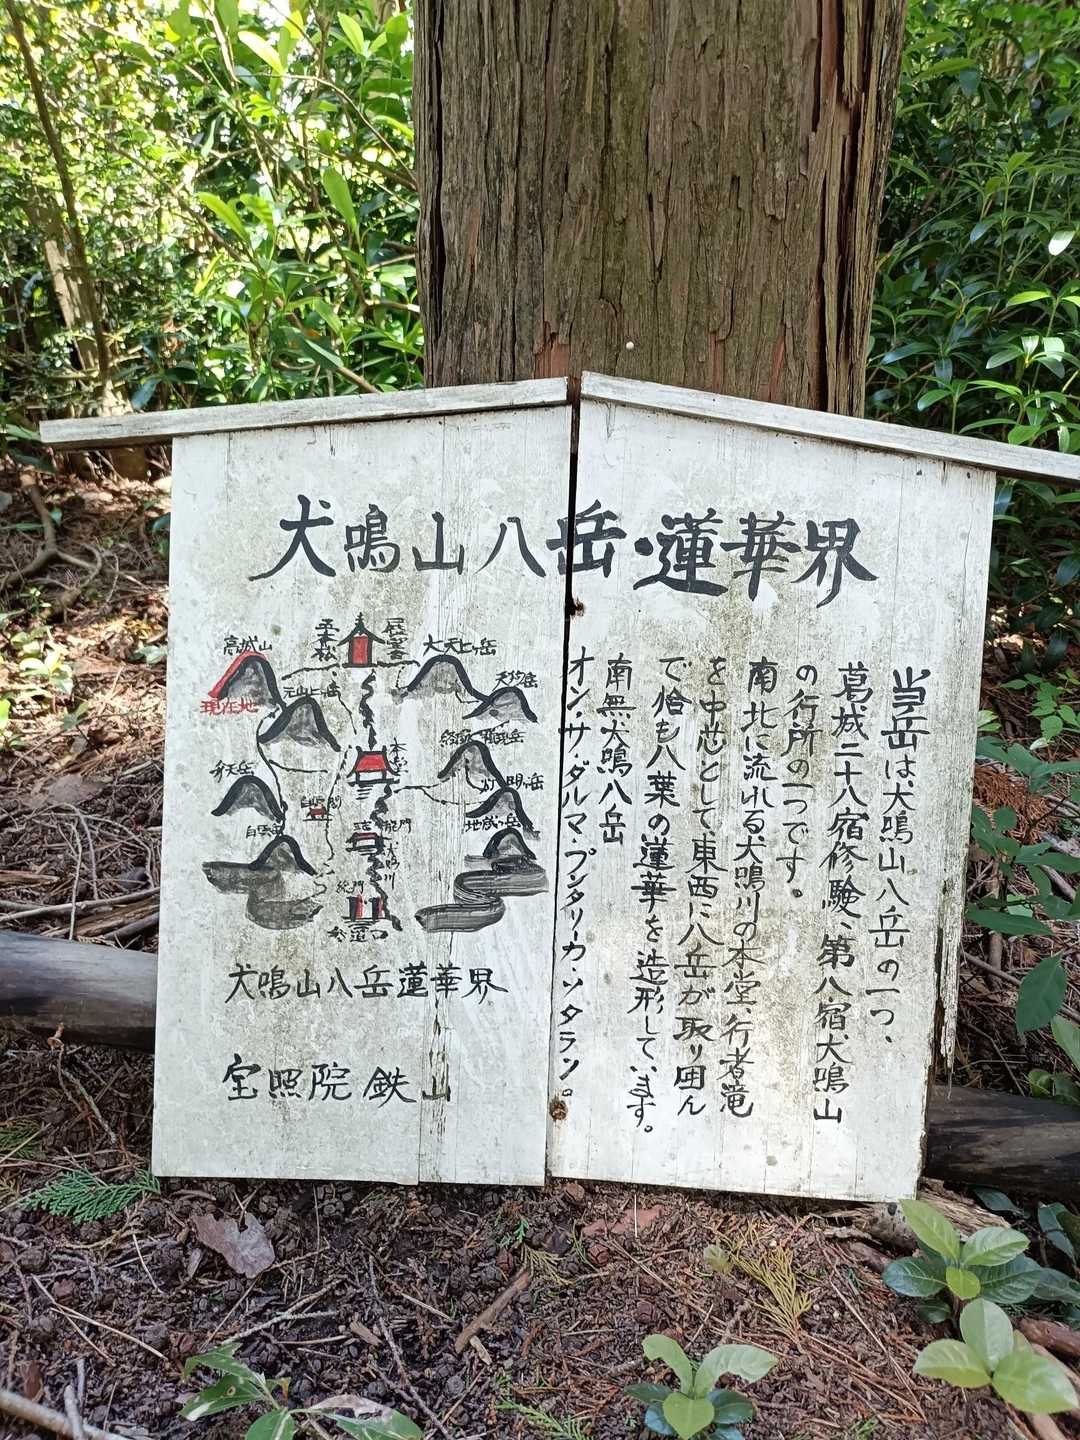 犬鳴山八岳・蓮華界
当岳は、犬鳴山八岳の一つ、
葛城二十八宿修験、第八宿犬鳴山
の行所の一つです。
南北に流れる犬鳴川の本堂、行者滝
を中芯として、東西に八岳が取り囲ん
で恰も八葉の蓮華を造形しています。
南無犬鳴八岳
オン・サ・ダルマ・プンダリーカ・ソタラン。
高城山
現在地
元山上ヶ岳
五本松
大天上ヶ岳
弁天岳
本堂
灯明ヶ岳
地蔵ヶ岳
犬鳴川
総門
参道口
犬鳴山八岳蓮華界
宝照院 鉄山